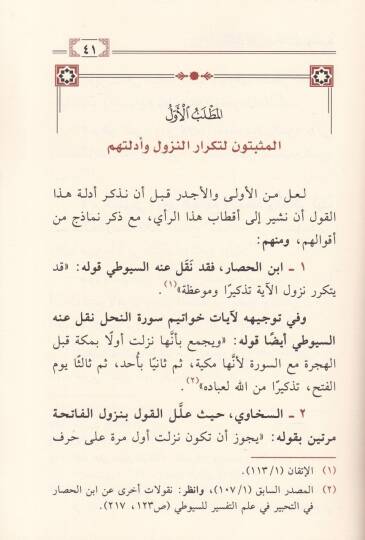 ٤١
المَطْلَبُ الْأَوَّلُ
المثبتون لتكرار النزول وأدلتهم
لعل من الأولى والأجدر قبل أن نذكر أدلة هذا
القول أن نشير إلى أقطاب هذا الرأي، مع ذكر نماذج من
أقوالهم، ومنهم:
١ ـ ابن الحصار، فقد نَقَل عنه السيوطي قوله: «قد
يتكرر نزول الآية تذكيرًا وموعظة»(١).
وفي توجيهه لآيات خواتيم سورة النحل نقل عنه
السيوطي أيضًا قوله: «ويجمع بأنَّها نزلت أولًا بمكة قبل
الهجرة مع السورة لأنَّها مكية، ثم ثانيًا بأُحد، ثم ثالثًا يوم
الفتح، تذكيرًا من الله لعباده»(٢).
٢ ـ السخاوي، حيث علَّل القول بنزول الفاتحة
مرتين بقوله: «يجوز أن تكون نزلت أول مرة على حرف
(١) الإتقان (١/١١٣).
(٢) المصدر السابق (١/١٠٧)، وانظر: نقولات أخرى عن ابن الحصار
في التحبير في علم التفسير للسيوطي (ص١٢٣، ٢١٧).